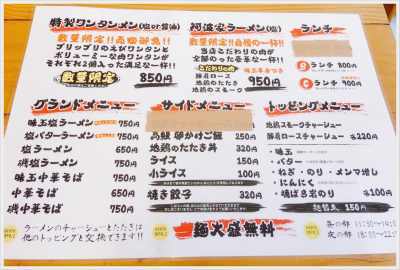 特製ワンタンメン(塩or醤油)
数量限定!!
プリップリのえびワンタンと
ボリューミーな肉ワンタンが
それぞれ2個入った満足な一杯!!
数量限定 850円
阿波家ラーメン(塩)
数量限定!!
当店こだわりの肉が
全部のった豪華な一杯!!
こだわりの肉
豚肩ロース
地鶏のたたき
地鶏のスモーク
950円
ランチ
Bランチ 800円
Cランチ 900円
グランドメニュー
味玉塩ラーメン 750円
塩バターラーメン 750円
塩ラーメン 650円
磯塩ラーメン 750円
味玉中華そば 750円
中華そば 650円
磯中華そば 750円
サイドメニュー
卵かけご飯 250円
地鶏のたたき丼 320円
ライス 150円
小ライス 100円
焼き餃子 320円
トッピングメニュー
地鶏スモークチャーシュー
豚肩ロースチャーシュー 各220円
・味玉
・バター
・ねぎ・のり・メンマ増し
・にんにく
・磯ばら岩のり 各100円
替玉 150円
ラーメンのチャーシューとたたきは
他のトッピングと交換できます!!
麺大盛無料
昼の部
夜の部